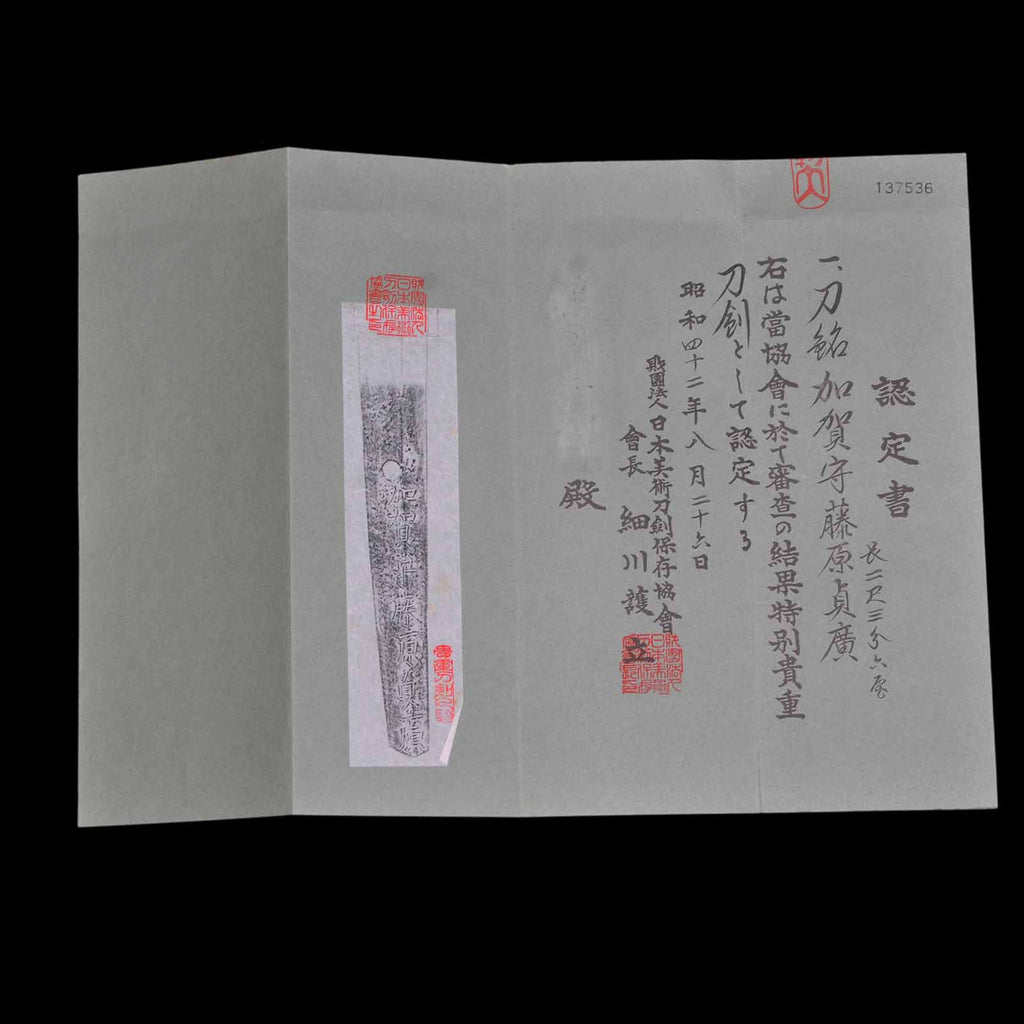 137536
認定書
一、刀銘加賀守藤原貞廣
長二尺三分六厘
右は當協會に於て審査の結果特別貴重
刀剣として認定する
昭和四十二年八月二十六日
財團法人日本美術刀劍保存協會
會長 細川護立
殿